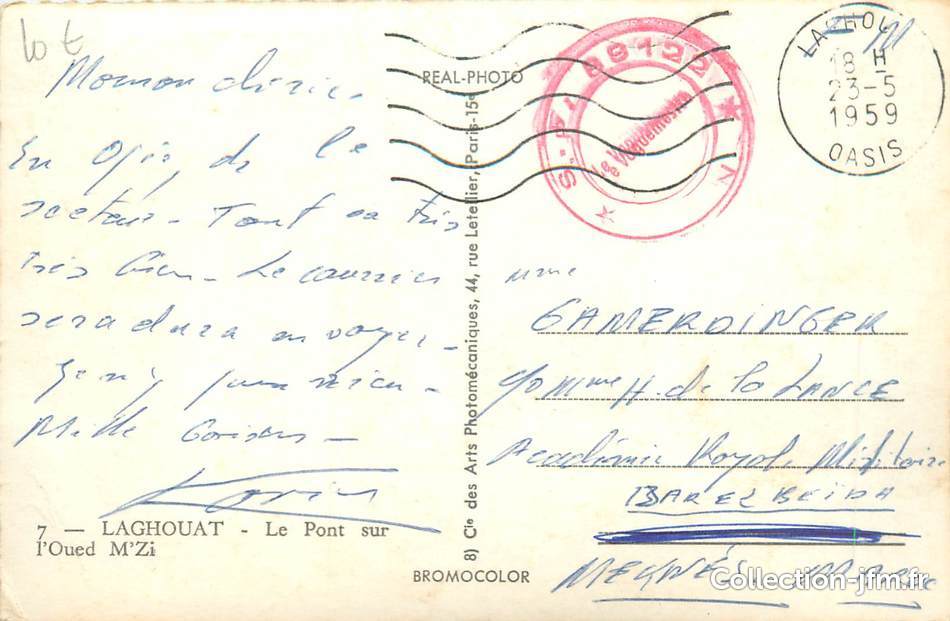 10 €
Maman chérie,
En Opér. de le
secteur - Tout va très
très bien - Le courrier
sera dura
Mille Baisers -
7 — LAGHOUAT - Le Pont sur
l'Oued M'Zi
REAL-PHOTO
8) Cie des Arts Photomécaniques, 44, rue Letellier, Paris-15e
BROMOCOLOR
S.P. 88122
Le Vaguemestre
LAGHOU
18 H
23-5
1959
OASIS
Mme
GAMERDINGER
H. de la LANCE
Académie Royale Militaire
DAR EL BEIDA
MEKNÈS MAROC
Collection-jfm.fr